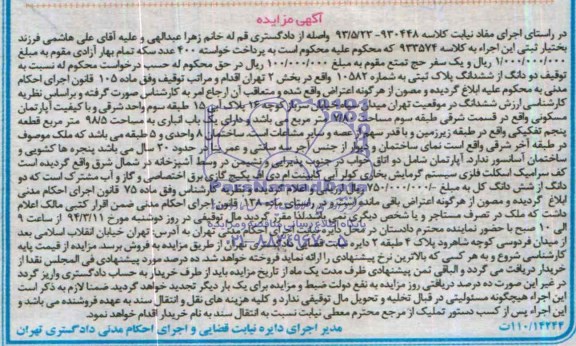 آگهی مزایده
در راستای اجرای مفاد نیابت کلاسه ۹۳۰۴۴۸- ۹۳/۵/۲۲ واصله از دادگستری قم له خانم زهرا عبدالهی و علیه آقای علی هاشمی فرزند
بختیار ثبتی این اجراء به کلاسه ۹۳۳۵۷۴ که محکوم علیه محکوم است به پرداخت خواسته ۴۰۰ عدد سکه تمام بهار آزادی مقوم به مبلغ
۱/۰۰۰/۰۰۰/۰۰۰ ریال و یک سفر حج تمتع مقوم به مبلغ ۱۰۰/۰۰۰/۰۰۰ ریال در حق محکوم له حسب درخواست محکوم له نسبت به
توقیف دو دانگ از ششدانگ پلاک ثبتی به شماره ۱۰۵۸۲ واقع در بخش ۲ تهران اقدام و مراتب توقیف وفق ماده ۱۰۵ قانون اجرای احکام
مدنی به محکوم علیه ابلاغ گردیده و مصون از هرگونه اعتراض واقع شده و متعاقب آن ارجاع امر به کارشناسی صورت گرفته و براساس نظریه
کارشناسی ارزش ششدانگ در موقعیت تهران میدان پلاک ۱۵ طبقه سوم واحد شرقی و با کیفیت آپارتمان
مسکونی واقع در قسمت شرقی طبقه سوم مساحت متر مربع می باشد دارای یک باب انباری به مساحت ۹/۸۵ متر مربع قطعه
پنجم تفکیکی واقع در طبقه زیرزمین و با قدر عرصه و سایر مشاعات است ساختمان ۸ واحدی و ۵ طبقه می باشد که ملک موصوف
در طبقه آخر شرقی واقع است نمای ساختمان و دیوار از جنس آجر حدود ۳۰ سال می باشد پنجره ها کشویی و
ساختمان آسانسور ندارد. آپارتمان شامل دو اتاق خواب در جنوب پذیرایی و نشیمن در وسط آشپزخانه در شمال شرق واقع گردیده است
کف سرامیک اسکلت فلزی سیستم گرمایش بخاری کولر آبی کابینت ام دی اف پکیج گازی برق اختصاصی و گاز و آب مشترک است که دو
دانگ از شش دانگ کل به مبلغ ۷۵۰/۰۰۰/۰۰۰/- کارشناس وفق ماده ۷۵ قانون اجرای احکام مدنی
ابلاغ گردیده و مصون از هرگونه اعتراض باقی مانده از اینرو در راستای ماده ۱۳۸ قانون اجرای احکام مدنی ضمن اقرار کشی مالک اعلام
داشت که ملک در تصرف مستاجر و یا شخص دیگری نمی باشد لذا مقرر گردید مال توقیفی در روز دوشنبه مورخ ۹۴/۳/۱۱ از ساعت ۹
الی صبح با حضور نماینده محترم دادستان در تهران به آدرس: تهران خیابان انقلاب اسلامی بعد
از میدان فردوسی کوچه شاهرود پلاک ۴ طبقه ۲ دایره از طریق مزایده به فروش برسد. مزایده از قیمت پایه
کارشناسی شروع و به هر کسی که بالاترین نرخ پیشنهادی را ارائه نماید فروخته خواهد شد. ده درصد مورد پیشنهادی فی المجلس نقدا از
خریدار دریافت می گردد و الباقی ثمن پیشنهادی ظرف مدت یک ماه از تاریخ مزایده باید از طرف خریدار به حساب دادگستری واریز گردد
در غیر این صورت ده درصد دریافتی روز مزایده به نفع دولت ضبط و مزایده برای یک بار دیگر تجدید خواهد گردید. ضمنا لازم به ذکر است
این اجراء هیچگونه مسئولیتی در قبال تخلیه و تحویل مال توقیفی ندارد و کلیه هزینه های نقل و انتقال سند به عهده فروشنده می باشد و
این اجراء پس از کسب دستور تملیک از مرجع محترم معطی نیابت نسبت به انتقال سند به نام خریدار اقدام خواهد نمود.
مدیر اجرای دایره نیابت قضایی و اجرای احکام مدنی دادگستری تهران
۱۱۰/۱۴۲۴۴ت